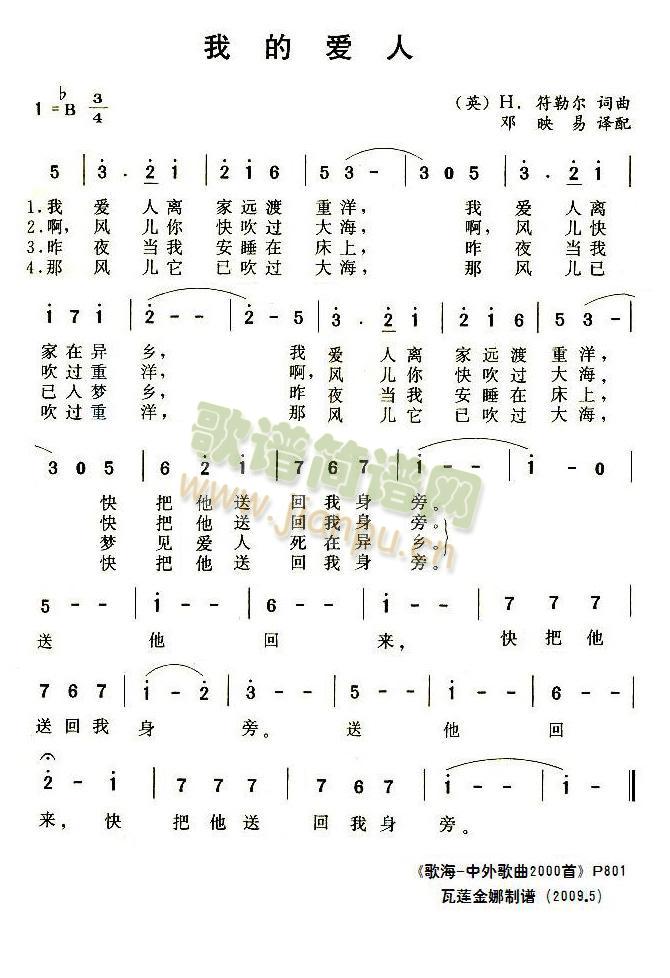 我的爱人
1=♭B 3/4
（英）H. 符勒尔 词曲
邓映易 译配
5 | 3 . 2 1 | 2 1 6 | 5 3 - | 3 0 5 | 3 . 2 1 |
1. 我 爱 人离 家远渡 重洋， 我 爱 人离
2. 啊，风 儿你 快吹过 大海， 啊，风 儿快
3. 昨 夜 当我 安睡在 床上， 昨 夜 当我
4. 那 风 儿它 已吹过 大海， 那 风 儿已
1 7 1 | 2 - - | 2 - 5 | 3 . 2 1 | 2 1 6 | 5 3 - |
家在异 乡， 我 爱 人离 家远渡 重洋，
吹过重 洋， 啊，风 儿你 快吹过 大海，
已入梦 乡， 昨 夜 当我 安睡在 床上，
吹过重 洋， 那 风 儿它 已吹过 大海，
3 0 5 | 6 2 1 | 7 6 7 | 1 - - | 1 - 0 |
快 把他送 回我身 旁。
快 把他送 回我身 旁。
梦 见爱人 死在异 乡。
快 把他送 回我身 旁。
歌谱简谱网
www.jianpu.cn
5 - - | 1 - - | 6 - - | 1 - - | 7 7 7 |
送 他 回 来， 快把他
7 6 7 | 1 - 2 | 3 - - | 5 - - | 1 - - | 6 - - |
送回我 身 旁。 送 他 回
2 - 1 | 7 7 7 | 7 6 7 | 1 - - | 1 - - ‖
来， 快 把他送 回我身 旁。
《歌海-中外歌曲2000首》P801
瓦莲金娜制谱（2009.5）